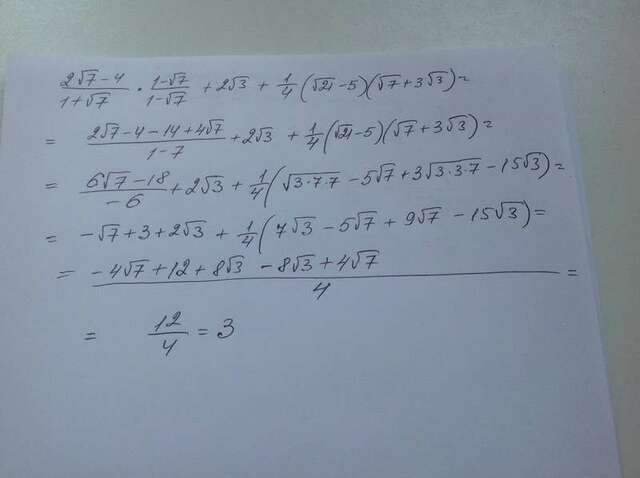 (2√7-4)/(1+√7) · (1-√7)/(1-√7) + 2√3 + 1/4 (√21-5)(√7+3√3)=
= (2√7-4-14+4√7)/(1-7) + 2√3 + 1/4 (√21-5)(√7+3√3)=
= (6√7-18)/(-6) + 2√3 + 1/4 (√3·7·7 - 5√7 + 3√3·3·7 - 15√3)=
= -√7+3+2√3 + 1/4 (7√3 - 5√7 + 9√7 - 15√3)=
= (-4√7+12+8√3 -8√3+4√7)/4 =
= 12/4 = 3